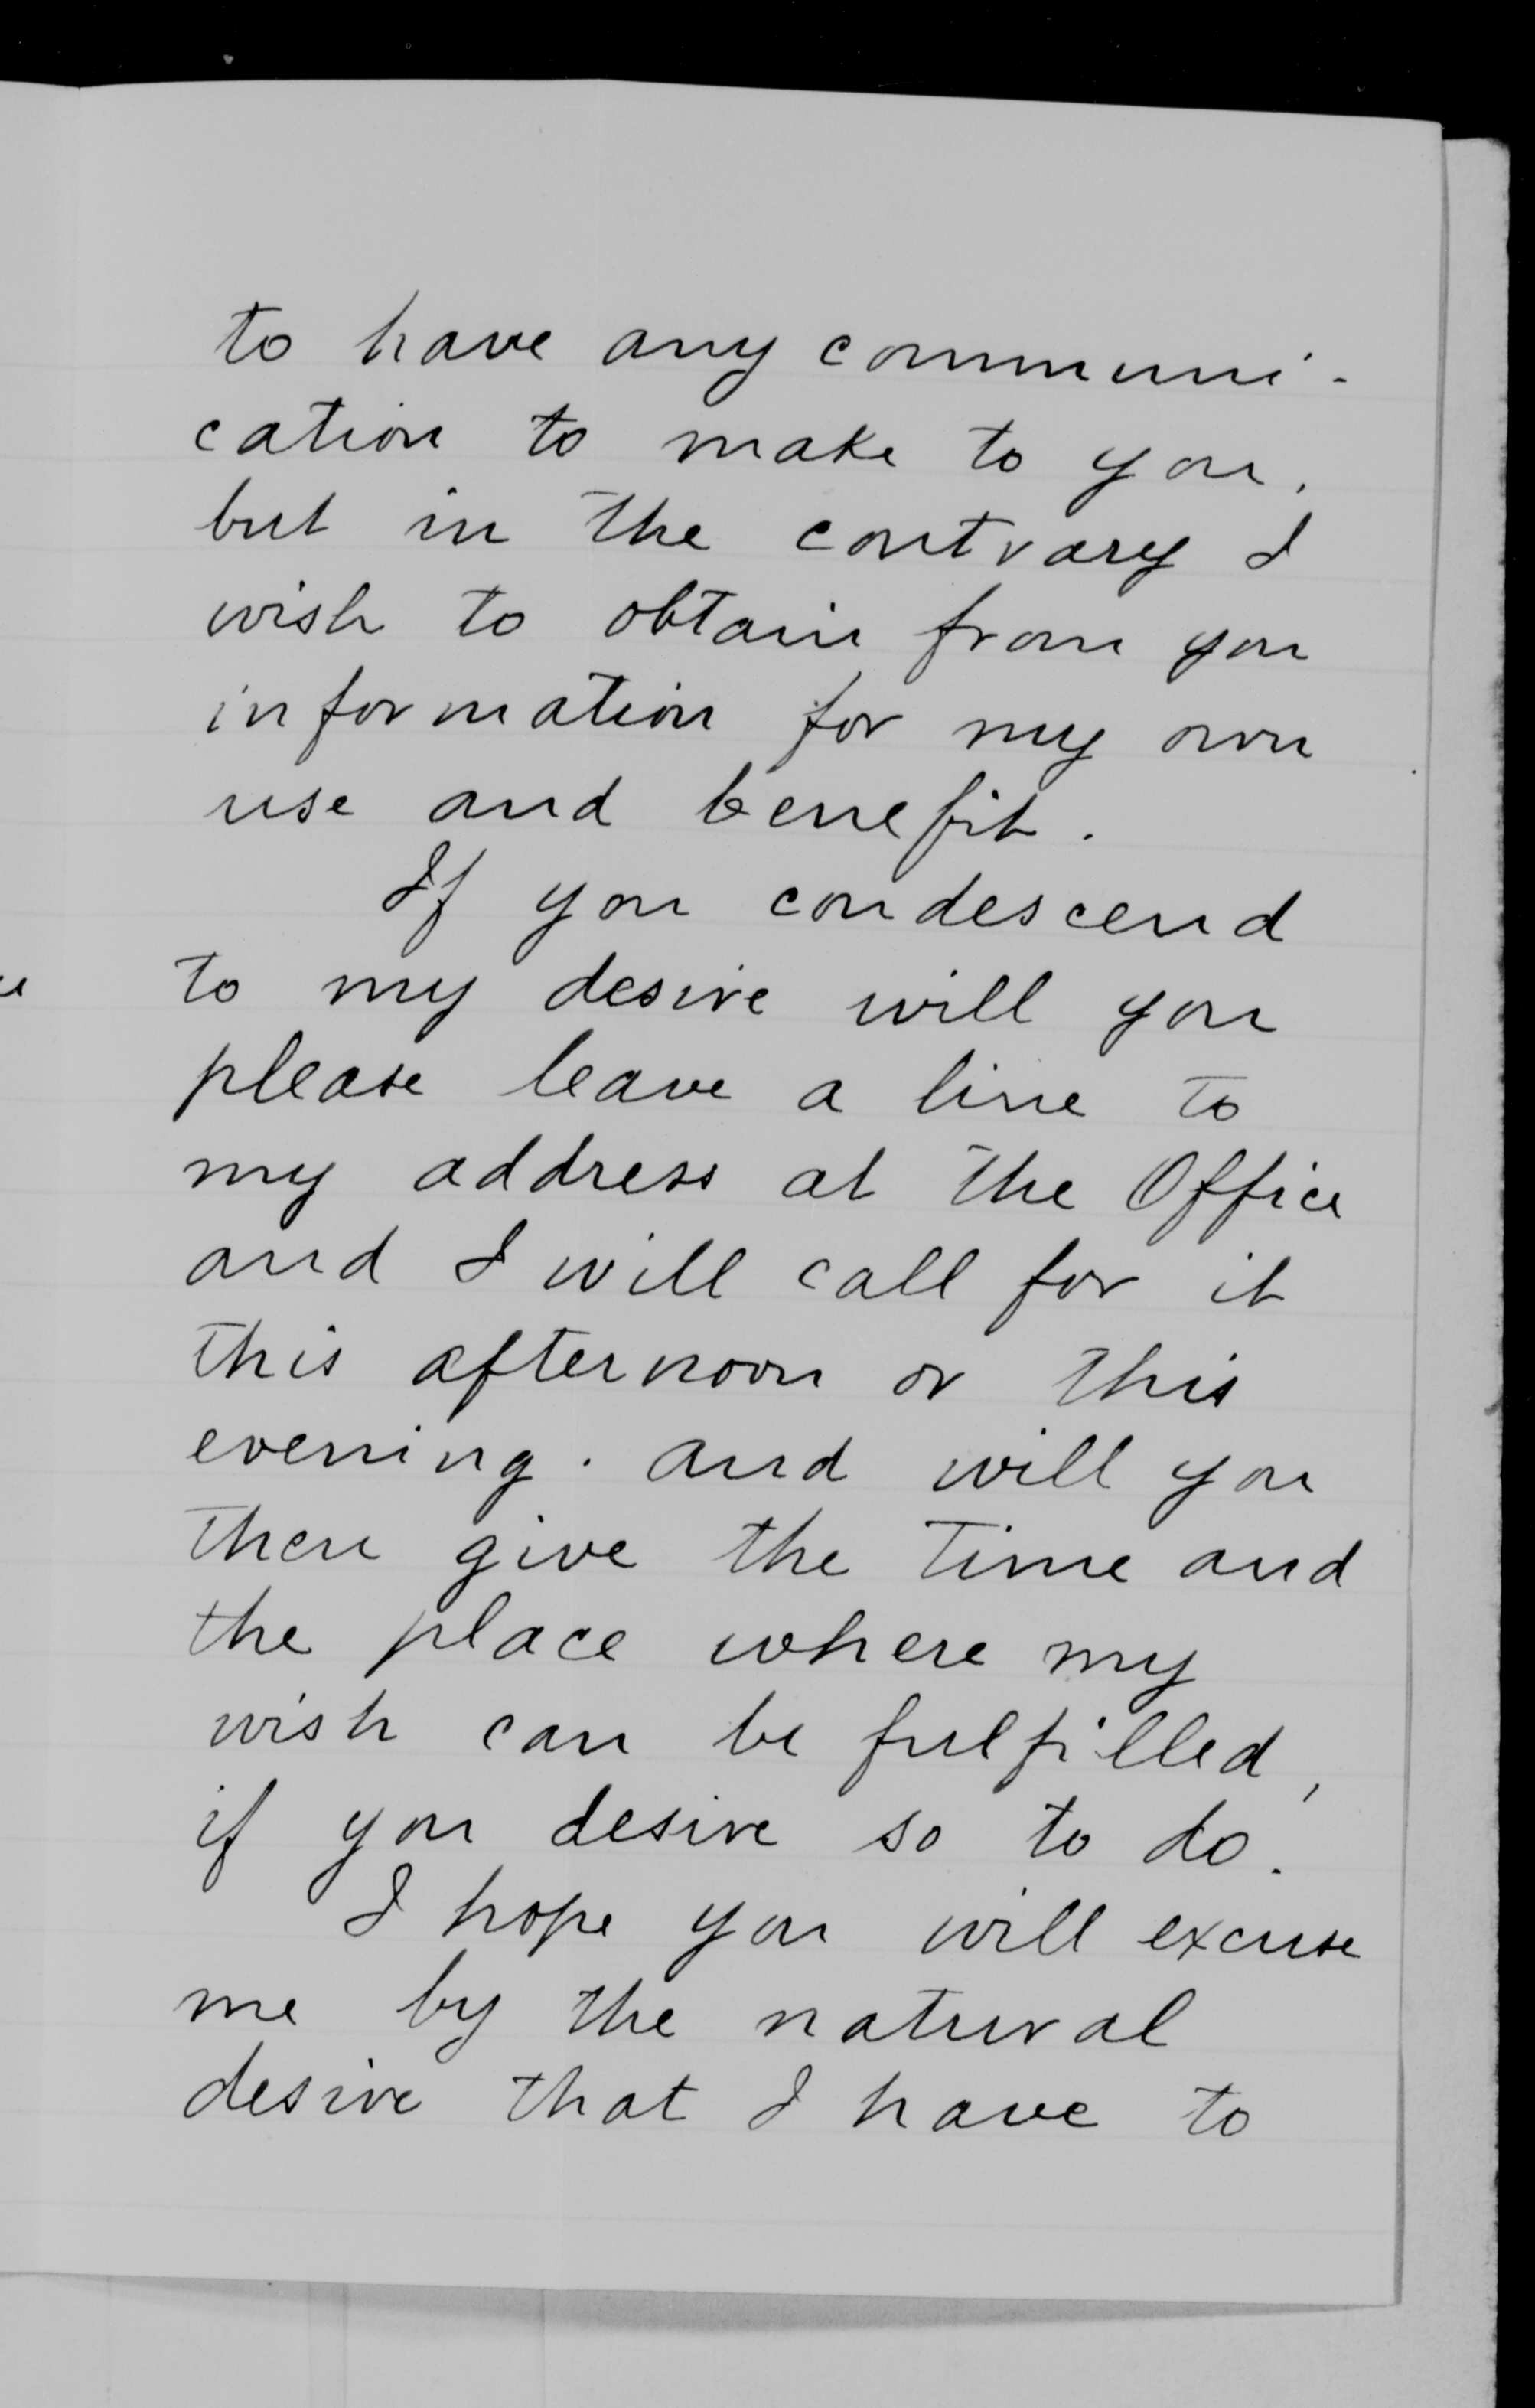 to have any communi-
cation to make to you,
but in the contrary I
wish to obtain from you
information for my own
use and benefit.
If you condescend
to my desire will you
please leave a line to
my address at the Office
and I will call for it
this afternoon or this
evening. and will you
then give the time and
the place where my
wish can be fulfilled,
if you desire so to do.
I hope you will excuse
me by the natural
desire that I have to